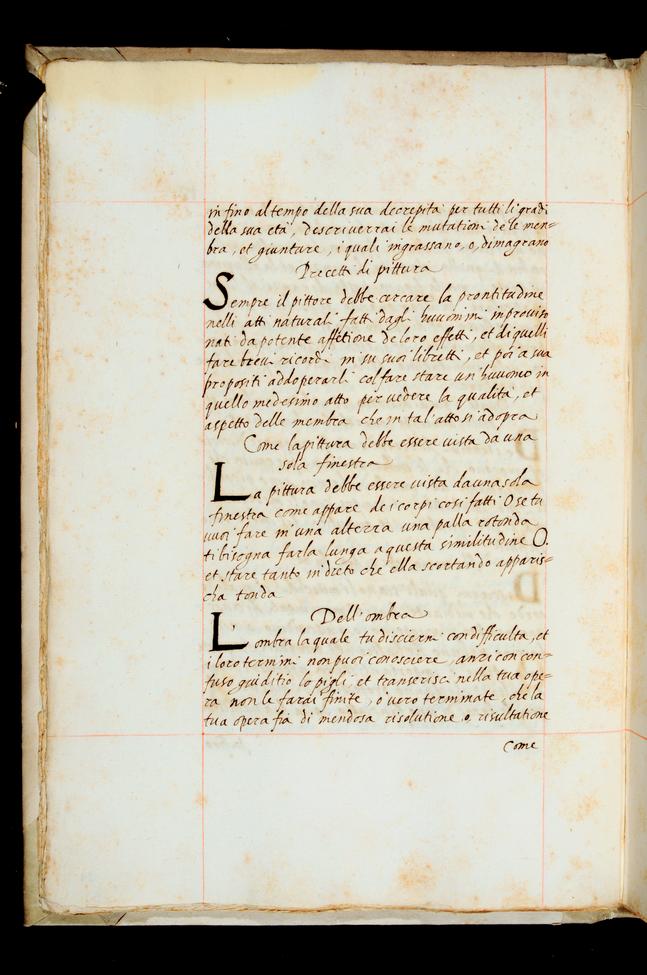 in fino al tempo della sua decrepità per tutti li gradi
della sua età, descriverrai le mutationi de le mem=
bra, et giunture, i quali ingrassano, o, dimagrano
Precetti di pittura
Sempre il pittore debbe cercare la prontitudine
nelli atti naturali fatti dagli huuomini inproviso
nati da potente affetione de loro effetti, et di quelli
fare brevi ricordi in su suoi libretti, et poi a sua
propositi addoperarli col fare stare un' huuomo in
quello medesimo atto per vedere la qualità, et
aspetto delle membra che in tal' atto si adopra
Come la pittura debbe essere vista da una
sola finestra
La pittura debbe essere vista da una sola
finestra come appare de i corpi cosi fatti O se tu
vuoi fare in una alterra una palla rotonda
ti bisogna farla lunga a questa similitudine O.
et stare tanto in dreto che ella scortando apparis=
cha tonda
Dell' ombra
L'ombra la quale tu discierni con difficulta, et
i loro termini non puoi conosciere, anzi con con=
fuso guiditio lo pigli, et transerisci nella tua ope=
ra non le farai finite, o vero terminate, che la
tua opera fia di mendosa risolutione o risultatione
Come